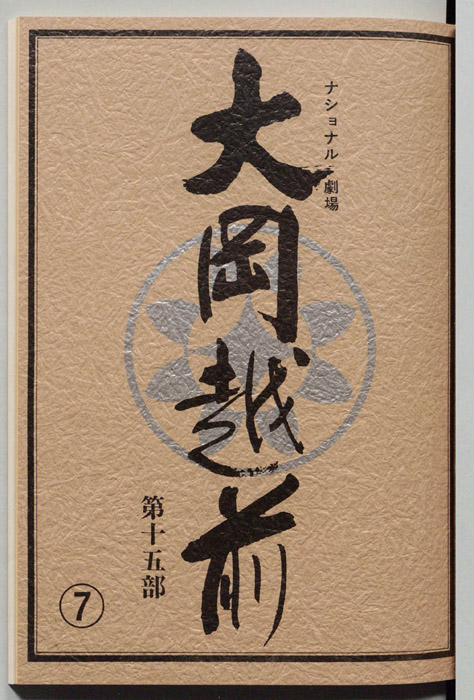 ナショナル劇場
大岡越前
第十五部
⑦